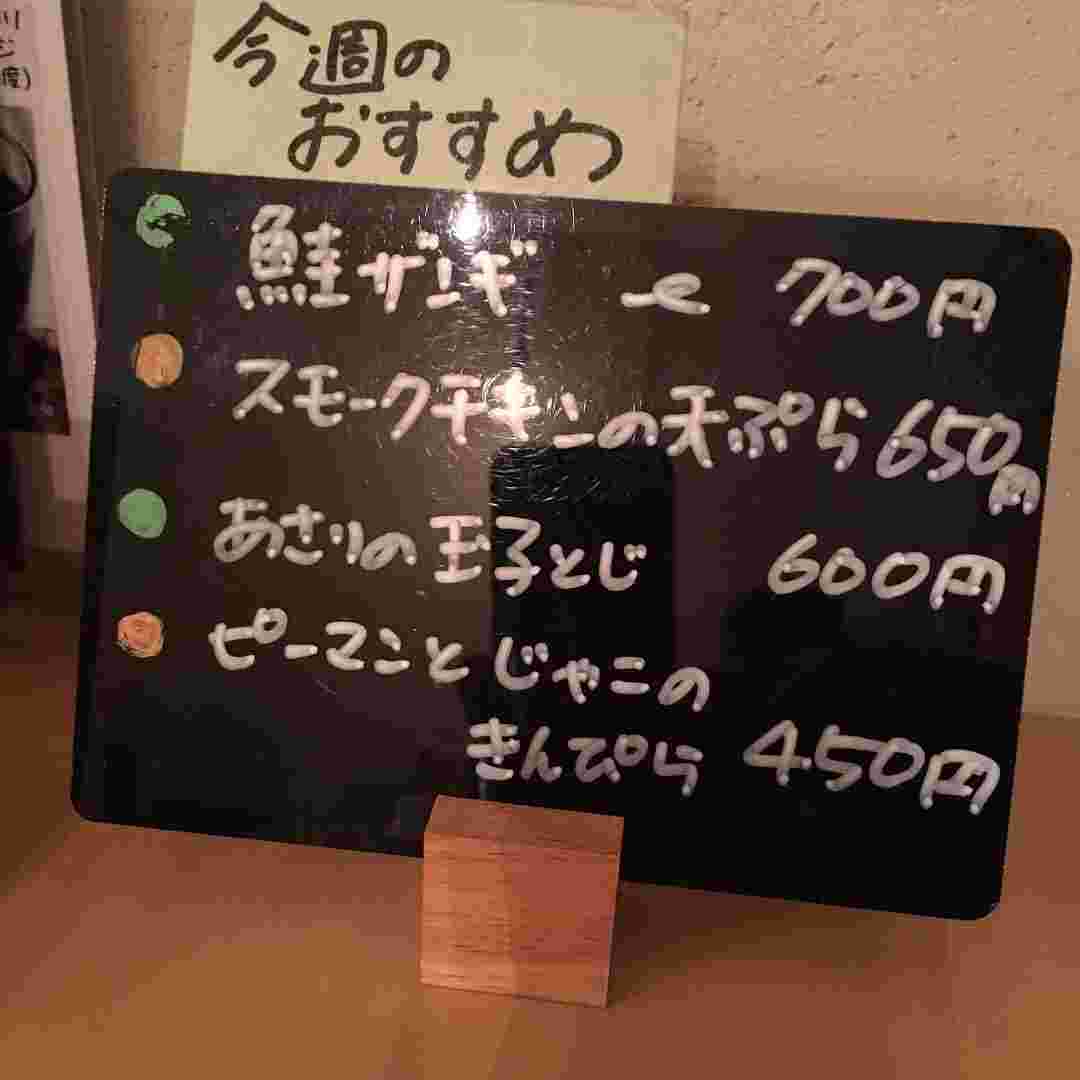 今週の
おすすめ
鮭ザンギ 700円
スモークチキンの天ぷら 650円
あさりの玉子とじ 600円
ピーマンとじゃこの
きんぴら 450円
度)